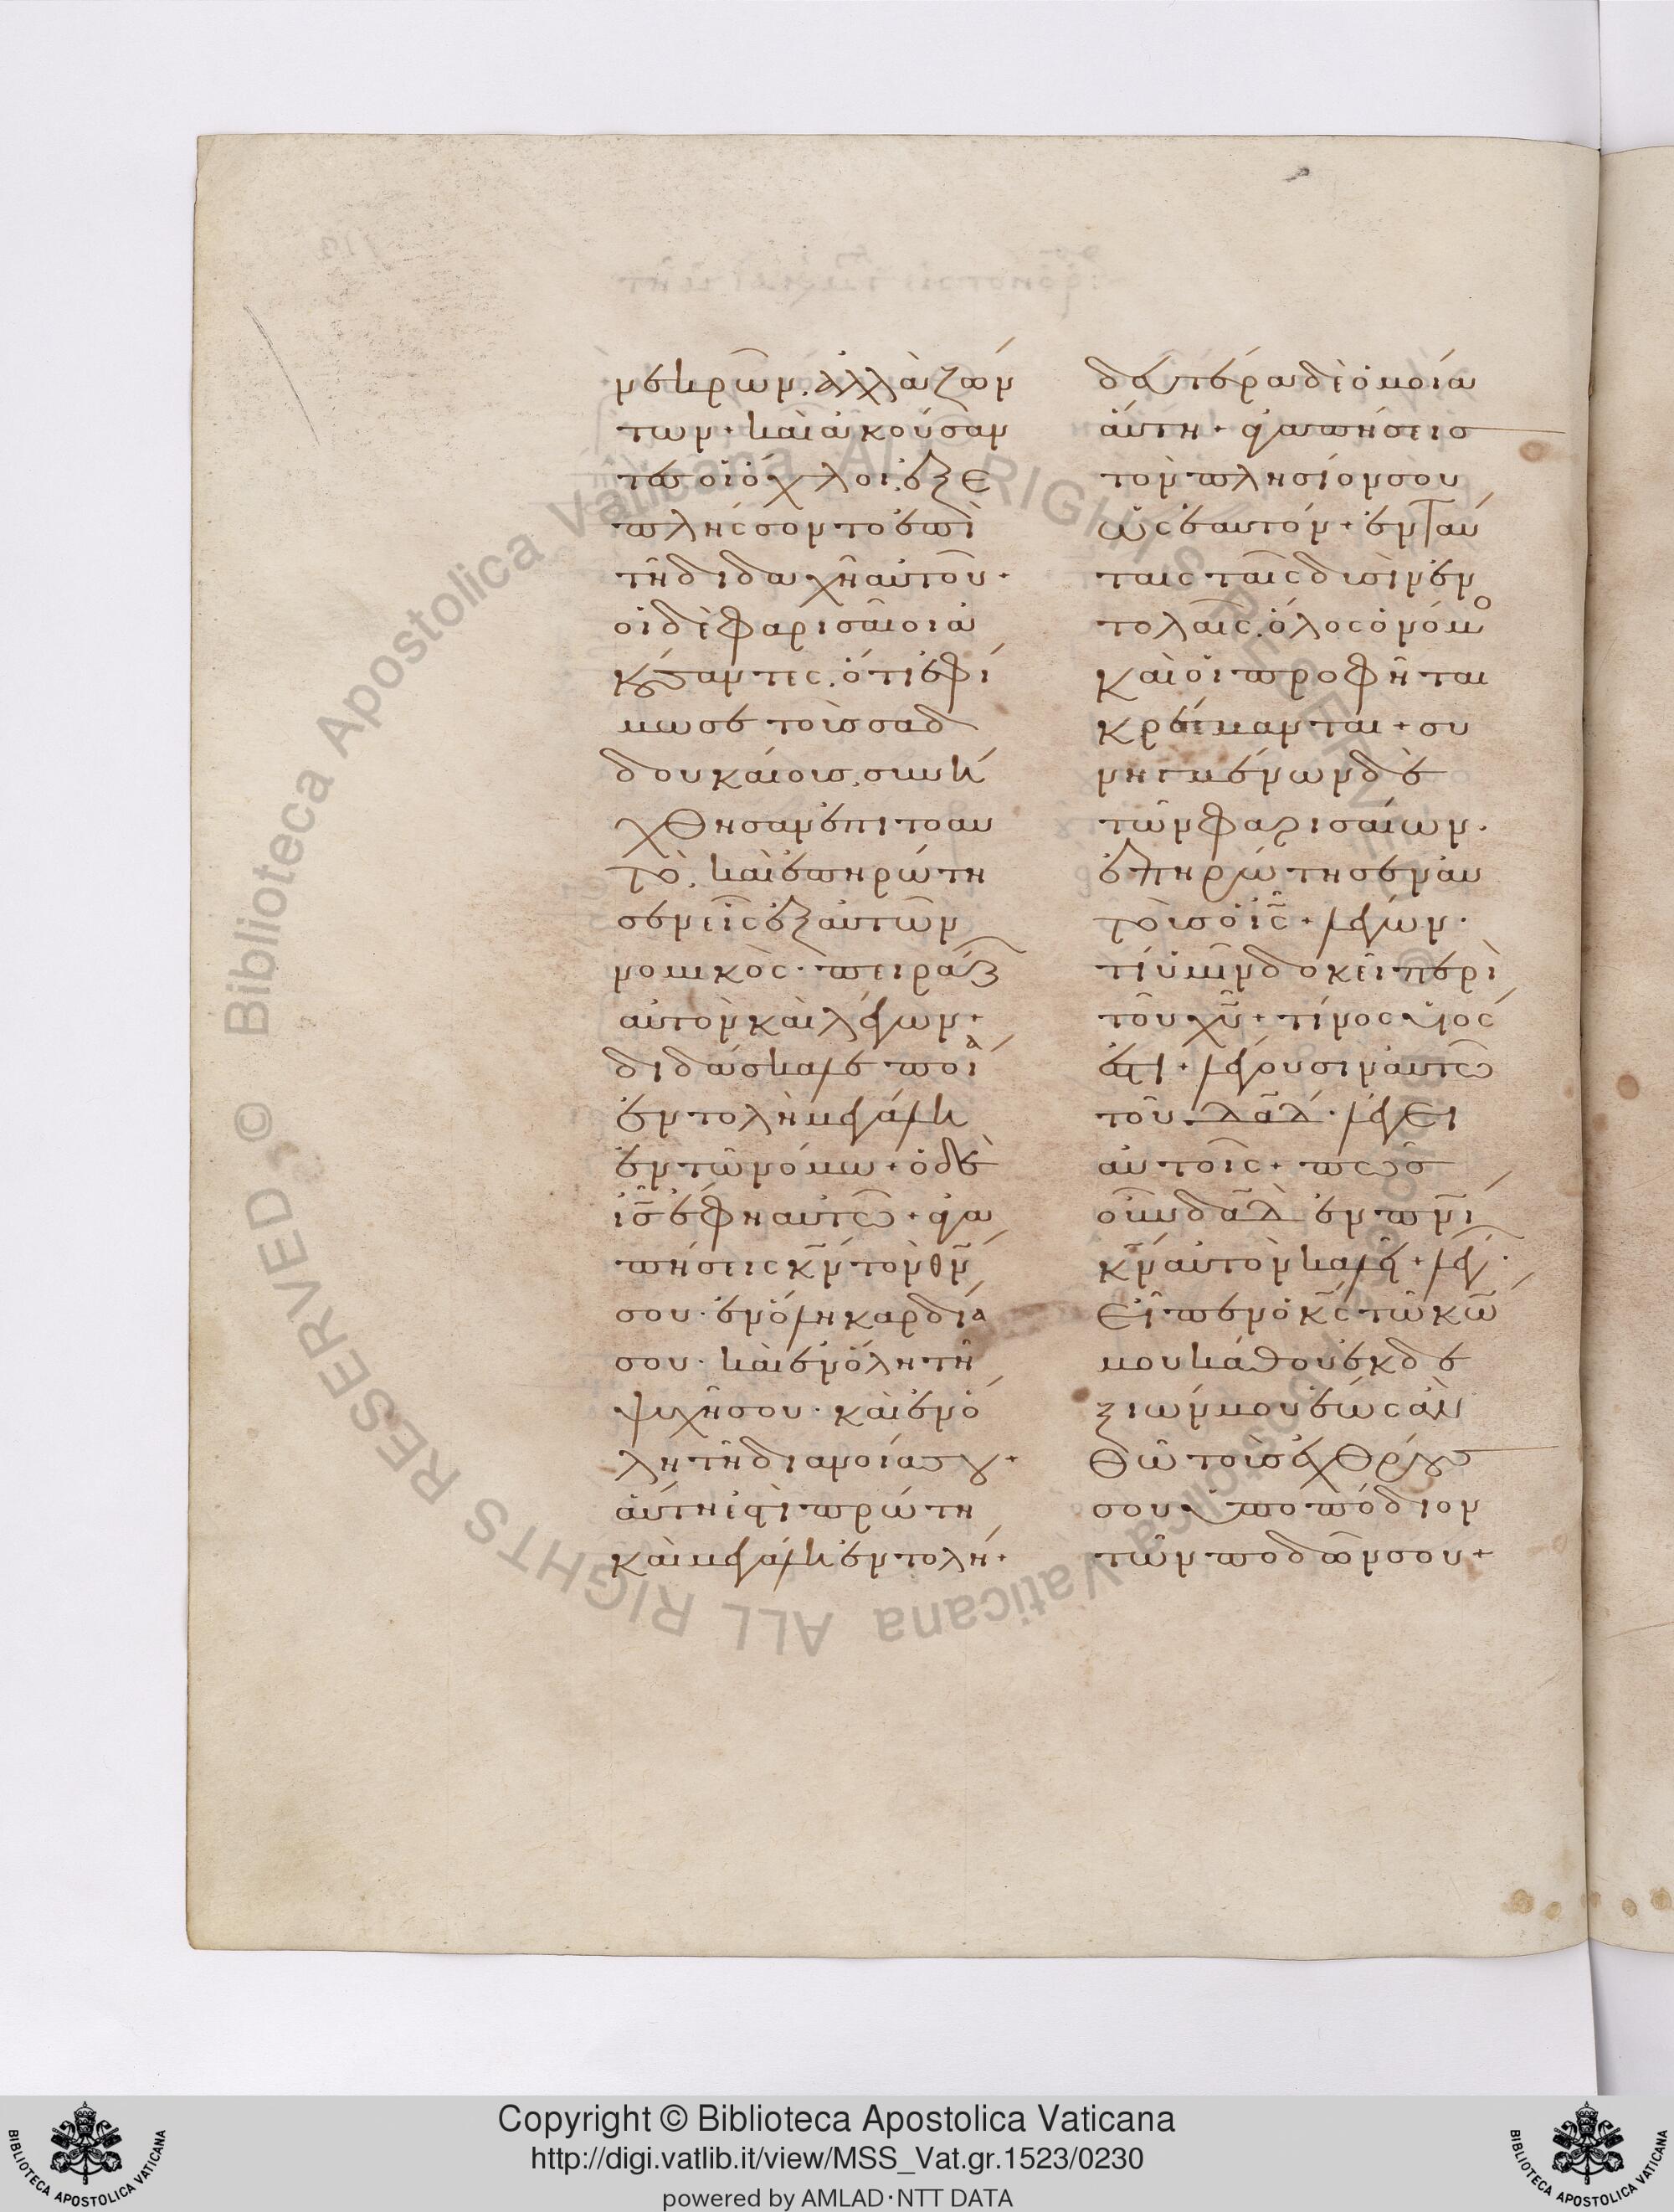 νεκρῶν. ἀλλὰ ζών
των + καὶ ἀκούσαν
τες οἱ ὄχλοι, ἐξε
πλήσσοντο ἐπὶ
τῆ διδαχῆ αὐτοῦ·
οἱ δὲ φαρισαῖοι ἀ
κούσαντες. ὅτι ἐφί
μωσε τοὺς σαδ
δουκαίους, συνή
χθησαν ἐπιτοαυ
τό. καὶ ἐπηρώτη
σεν εἷς ἐξ αὐτῶν
νομικὸς· πειράζ
αὐτὸν καὶ λέγων +
διδάσκαλε ποία
ἐντολὴ μεγάλη
ἐν τῶ νόμω + ὁ δὲ
ις ἔφη αὐτῶ + ἀγα
πήσεις κν τὸν θν
σου· ἐν ὅλη καρδία
σου· καὶ ἐν ὅλη τῆ
ψυχῆ σου· καὶ ἐν ὅ
λη τῆ διανοία σου +
αὕτη ἐστὶ πρώτη
καὶ μεγάλη ἐντολή +
δευτέρα δὲ ὁμοία
αὐτῆ + ἀγαπήσεις
τὸν πλησίον σου
ὡς ἑαυτόν + ἐν ταύ
ταις ταῖς δυσὶν ἐν
τολαῖς. ὅλος ὁ νόμο
καὶ οἱ προφῆται
κρέμανται + συ
νηγμένων δὲ
τῶν φαρισαίων.
ἐπηρώτησεν αὐ
τοὺς ὁ ις + λέγων·
τί ὑμῖν δοκεῖ περὶ
τοῦ χυ + τίνος υἱός
ἐστι + λέγουσιν αὐτῶ
τοῦ δαδ· λέγει
αὐτοῖς + πῶς
οὖν δαδ ἐν πνι
κν αὐτὸν καλεῖ + λέγ·
εἶπεν ὁ κς τῶ κω
μου κάθου ἐκ δε
ξιῶν μου ἕως ἂν
θῶ τοὺς ἐχθρούς
σου ὑποπόδιον
τῶν ποδῶν σου +
Copyright © Biblioteca Apostolica Vaticana
http://digi.vatlib.it/view/MSS_Vat.gr.1523/0230
powered by AMLAD·NTT DATA
BIBLIOTECA APOSTOLICA VATICANA
BIBLIOTECA APOSTOLICA VATICANA
© Biblioteca Apostolica Vaticana ALL RIGHTS RESERVED
© Biblioteca Apostolica Vaticana ALL RIGHTS RESERVED